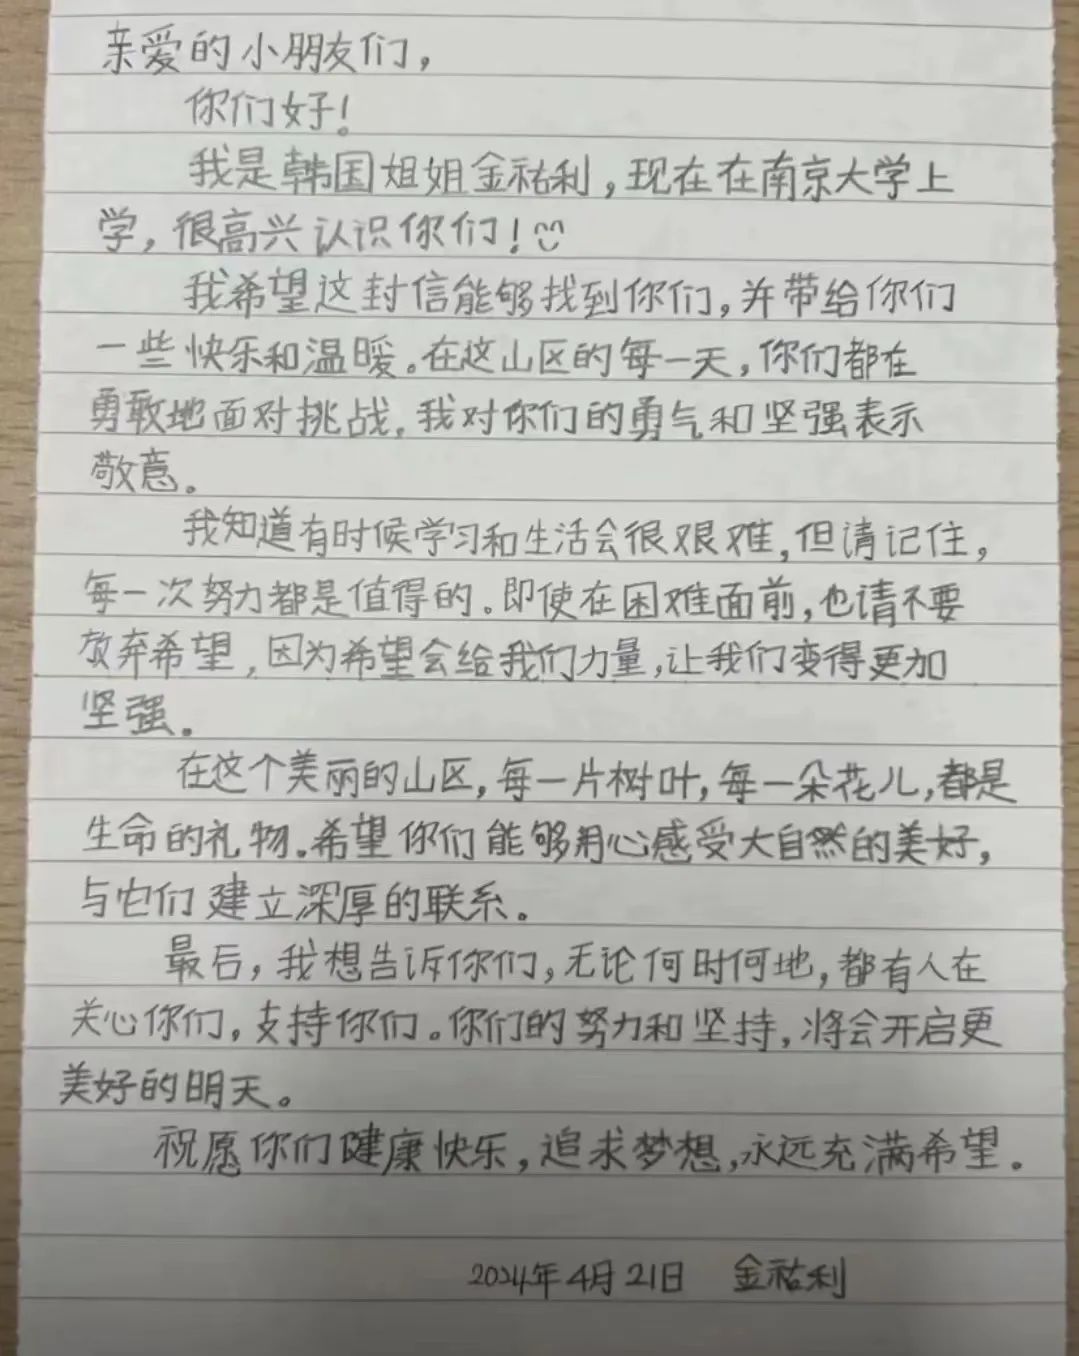 亲爱的小朋友们，
你们好！
我是韩国姐姐金祐利，现在在南京大学上
学，很高兴认识你们！
我希望这封信能够找到你们，并带给你们
一些快乐和温暖。在这山区的每一天，你们都在
勇敢地面对挑战，我对你们的勇气和坚强表示
敬意。
我知道有时候学习和生活会很艰难，但请记住，
每一次努力都是值得的。即使在困难面前，也请不要
放弃希望，因为希望会给我们力量，让我们变得更加
坚强。
在这个美丽的山区，每一片树叶，每一朵花儿，都是
生命的礼物。希望你们能够用心感受大自然的美好，
与它们建立深厚的联系。
最后，我想告诉你们，无论何时何地，都有人在
关心你们，支持你们。你们的努力和坚持，将会开启更
美好的明天。
祝愿你们健康快乐，追求梦想，永远充满希望。
2024年4月21日 金祐利